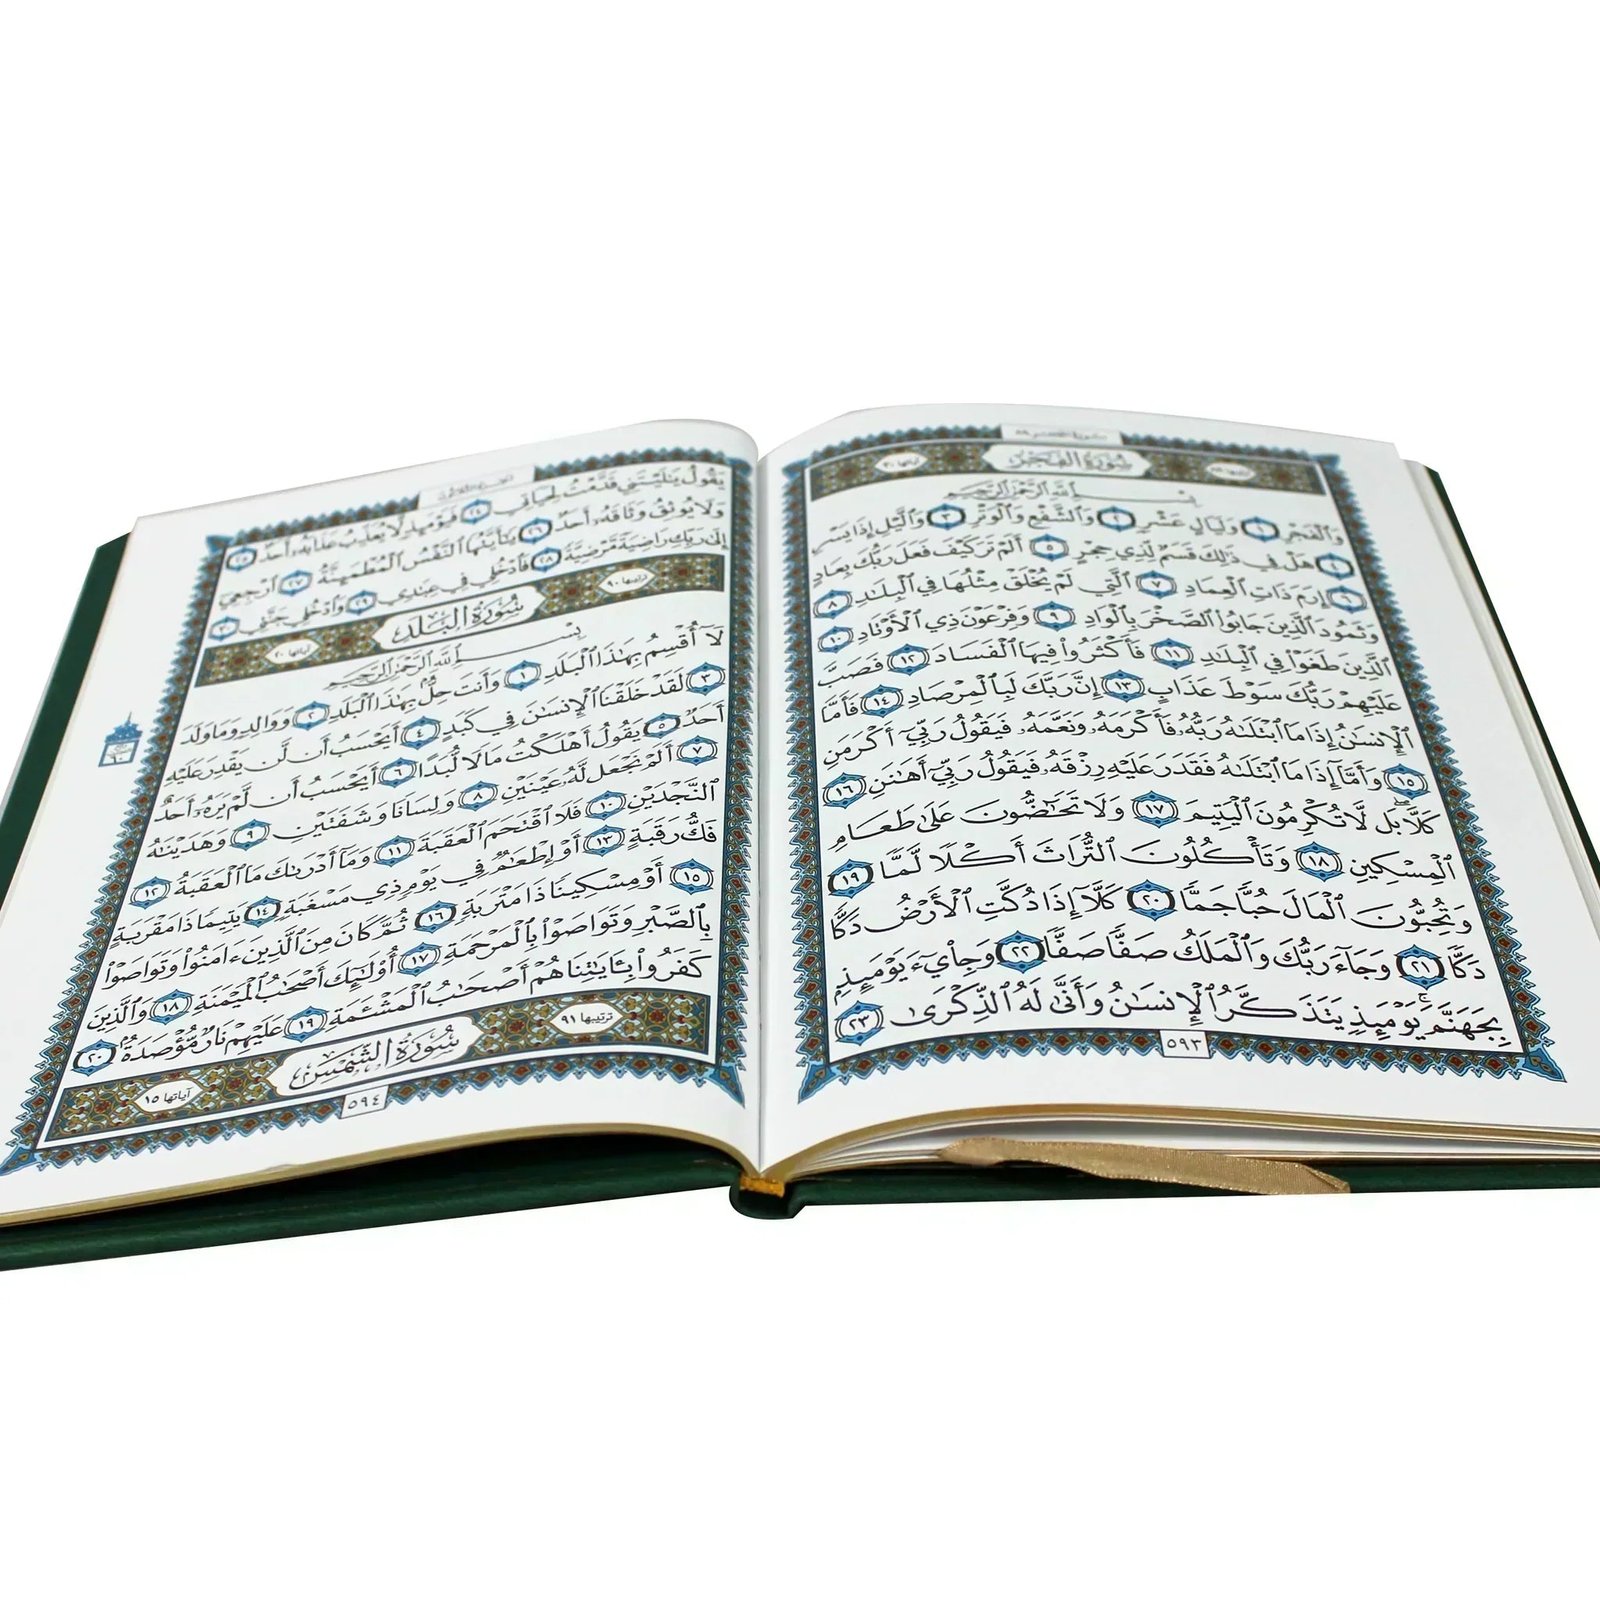 سورة الفجر ٨٩
ترتيبها ٨٩ سورة الفجر آياتها ٣٠
بسم الله الرحمن الرحيم
وَٱلْفَجْرِ ١ وَلَيَالٍ عَشْرٍ ٢ وَٱلشَّفْعِ وَٱلْوَتْرِ ٣ وَٱلَّيْلِ إِذَا يَسْرِ
٤ هَلْ فِي ذَٰلِكَ قَسَمٌ لِّذِي حِجْرٍ ٥ أَلَمْ تَرَ كَيْفَ فَعَلَ رَبُّكَ بِعَادٍ
٦ إِرَمَ ذَاتِ ٱلْعِمَادِ ٧ ٱلَّتِي لَمْ يُخْلَقْ مِثْلُهَا فِي ٱلْبِلَٰدِ ٨
وَثَمُودَ ٱلَّذِينَ جَابُوا۟ ٱلصَّخْرَ بِٱلْوَادِ ٩ وَفِرْعَوْنَ ذِي ٱلْأَوْتَادِ ١٠
ٱلَّذِينَ طَغَوْا۟ فِي ٱلْبِلَٰدِ ١١ فَأَكْثَرُوا۟ فِيهَا ٱلْفَسَادَ ١٢ فَصَبَّ
عَلَيْهِمْ رَبُّكَ سَوْطَ عَذَابٍ ١٣ إِنَّ رَبَّكَ لَبِٱلْمِرْصَادِ ١٤ فَأَمَّا
ٱلْإِنسَٰنُ إِذَا مَا ٱبْتَلَىٰهُ رَبُّهُۥ فَأَكْرَمَهُۥ وَنَعَّمَهُۥ فَيَقُولُ رَبِّيٓ أَكْرَمَنِ
١٥ وَأَمَّآ إِذَا مَا ٱبْتَلَىٰهُ فَقَدَرَ عَلَيْهِ رِزْقَهُۥ فَيَقُولُ رَبِّيٓ أَهَٰنَنِ ١٦
كَلَّا ۖ بَل لَّا تُكْرِمُونَ ٱلْيَتِيمَ ١٧ وَلَا تَحَٰٓضُّونَ عَلَىٰ طَعَامِ
ٱلْمِسْكِينِ ١٨ وَتَأْكُلُونَ ٱلتُّرَاثَ أَكْلًا لَّمًّا ١٩
وَتُحِبُّونَ ٱلْمَالَ حُبًّا جَمًّا ٢٠ كَلَّآ إِذَا دُكَّتِ ٱلْأَرْضُ دَكًّا
دَكًّا ٢١ وَجَآءَ رَبُّكَ وَٱلْمَلَكُ صَفًّا صَفًّا ٢٢ وَجِا۟يٓءَ يَوْمَئِذٍۭ
بِجَهَنَّمَ ۚ يَوْمَئِذٍ يَتَذَكَّرُ ٱلْإِنسَٰنُ وَأَنَّىٰ لَهُ ٱلذِّكْرَىٰ ٢٣
٥٩٣
الجزء الثلاثون
يَقُولُ يَٰلَيْتَنِي قَدَّمْتُ لِحَيَاتِي ٢٤ فَيَوْمَئِذٍ لَّا يُعَذِّبُ عَذَابَهُۥٓ أَحَدٌ ٢٥
وَلَا يُوثِقُ وَثَاقَهُۥٓ أَحَدٌ ٢٦ يَٰٓأَيَّتُهَا ٱلنَّفْسُ ٱلْمُطْمَئِنَّةُ ٢٧ ٱرْجِعِيٓ
إِلَىٰ رَبِّكِ رَاضِيَةً مَّرْضِيَّةً ٢٨ فَٱدْخُلِي فِي عِبَٰدِي ٢٩ وَٱدْخُلِي جَنَّتِي ٣٠
ترتيبها ٩٠ سورة البلد آياتها ٢٠
بسم الله الرحمن الرحيم
لَآ أُقْسِمُ بِهَٰذَا ٱلْبَلَدِ ١ وَأَنتَ حِلٌّۢ بِهَٰذَا ٱلْبَلَدِ ٢ وَوَالِدٍ وَمَا وَلَدَ
٣ لَقَدْ خَلَقْنَا ٱلْإِنسَٰنَ فِي كَبَدٍ ٤ أَيَحْسَبُ أَن لَّن يَقْدِرَ عَلَيْهِ
أَحَدٌ ٥ يَقُولُ أَهْلَكْتُ مَالًا لُّبَدًا ٦ أَيَحْسَبُ أَن لَّمْ يَرَهُۥٓ أَحَدٌ
٧ أَلَمْ نَجْعَل لَّهُۥ عَيْنَيْنِ ٨ وَلِسَانًا وَشَفَتَيْنِ ٩ وَهَدَيْنَٰهُ
ٱلنَّجْدَيْنِ ١٠ فَلَا ٱقْتَحَمَ ٱلْعَقَبَةَ ١١ وَمَآ أَدْرَىٰكَ مَا ٱلْعَقَبَةُ ١٢
فَكُّ رَقَبَةٍ ١٣ أَوْ إِطْعَٰمٌ فِي يَوْمٍ ذِي مَسْغَبَةٍ ١٤ يَتِيمًا ذَا مَقْرَبَةٍ
١٥ أَوْ مِسْكِينًا ذَا مَتْرَبَةٍ ١٦ ثُمَّ كَانَ مِنَ ٱلَّذِينَ ءَامَنُوا۟ وَتَوَاصَوْا۟
بِٱلصَّبْرِ وَتَوَاصَوْا۟ بِٱلْمَرْحَمَةِ ١٧ أُو۟لَٰٓئِكَ أَصْحَٰبُ ٱلْمَيْمَنَةِ ١٨ وَٱلَّذِينَ
كَفَرُوا۟ بِـَٔايَٰتِنَا هُمْ أَصْحَٰبُ ٱلْمَشْـَٔمَةِ ١٩ عَلَيْهِمْ نَارٌ مُّؤْصَدَةٌۢ ٢٠
ترتيبها ٩١ سورة الشمس آياتها ١٥
٥٩٤